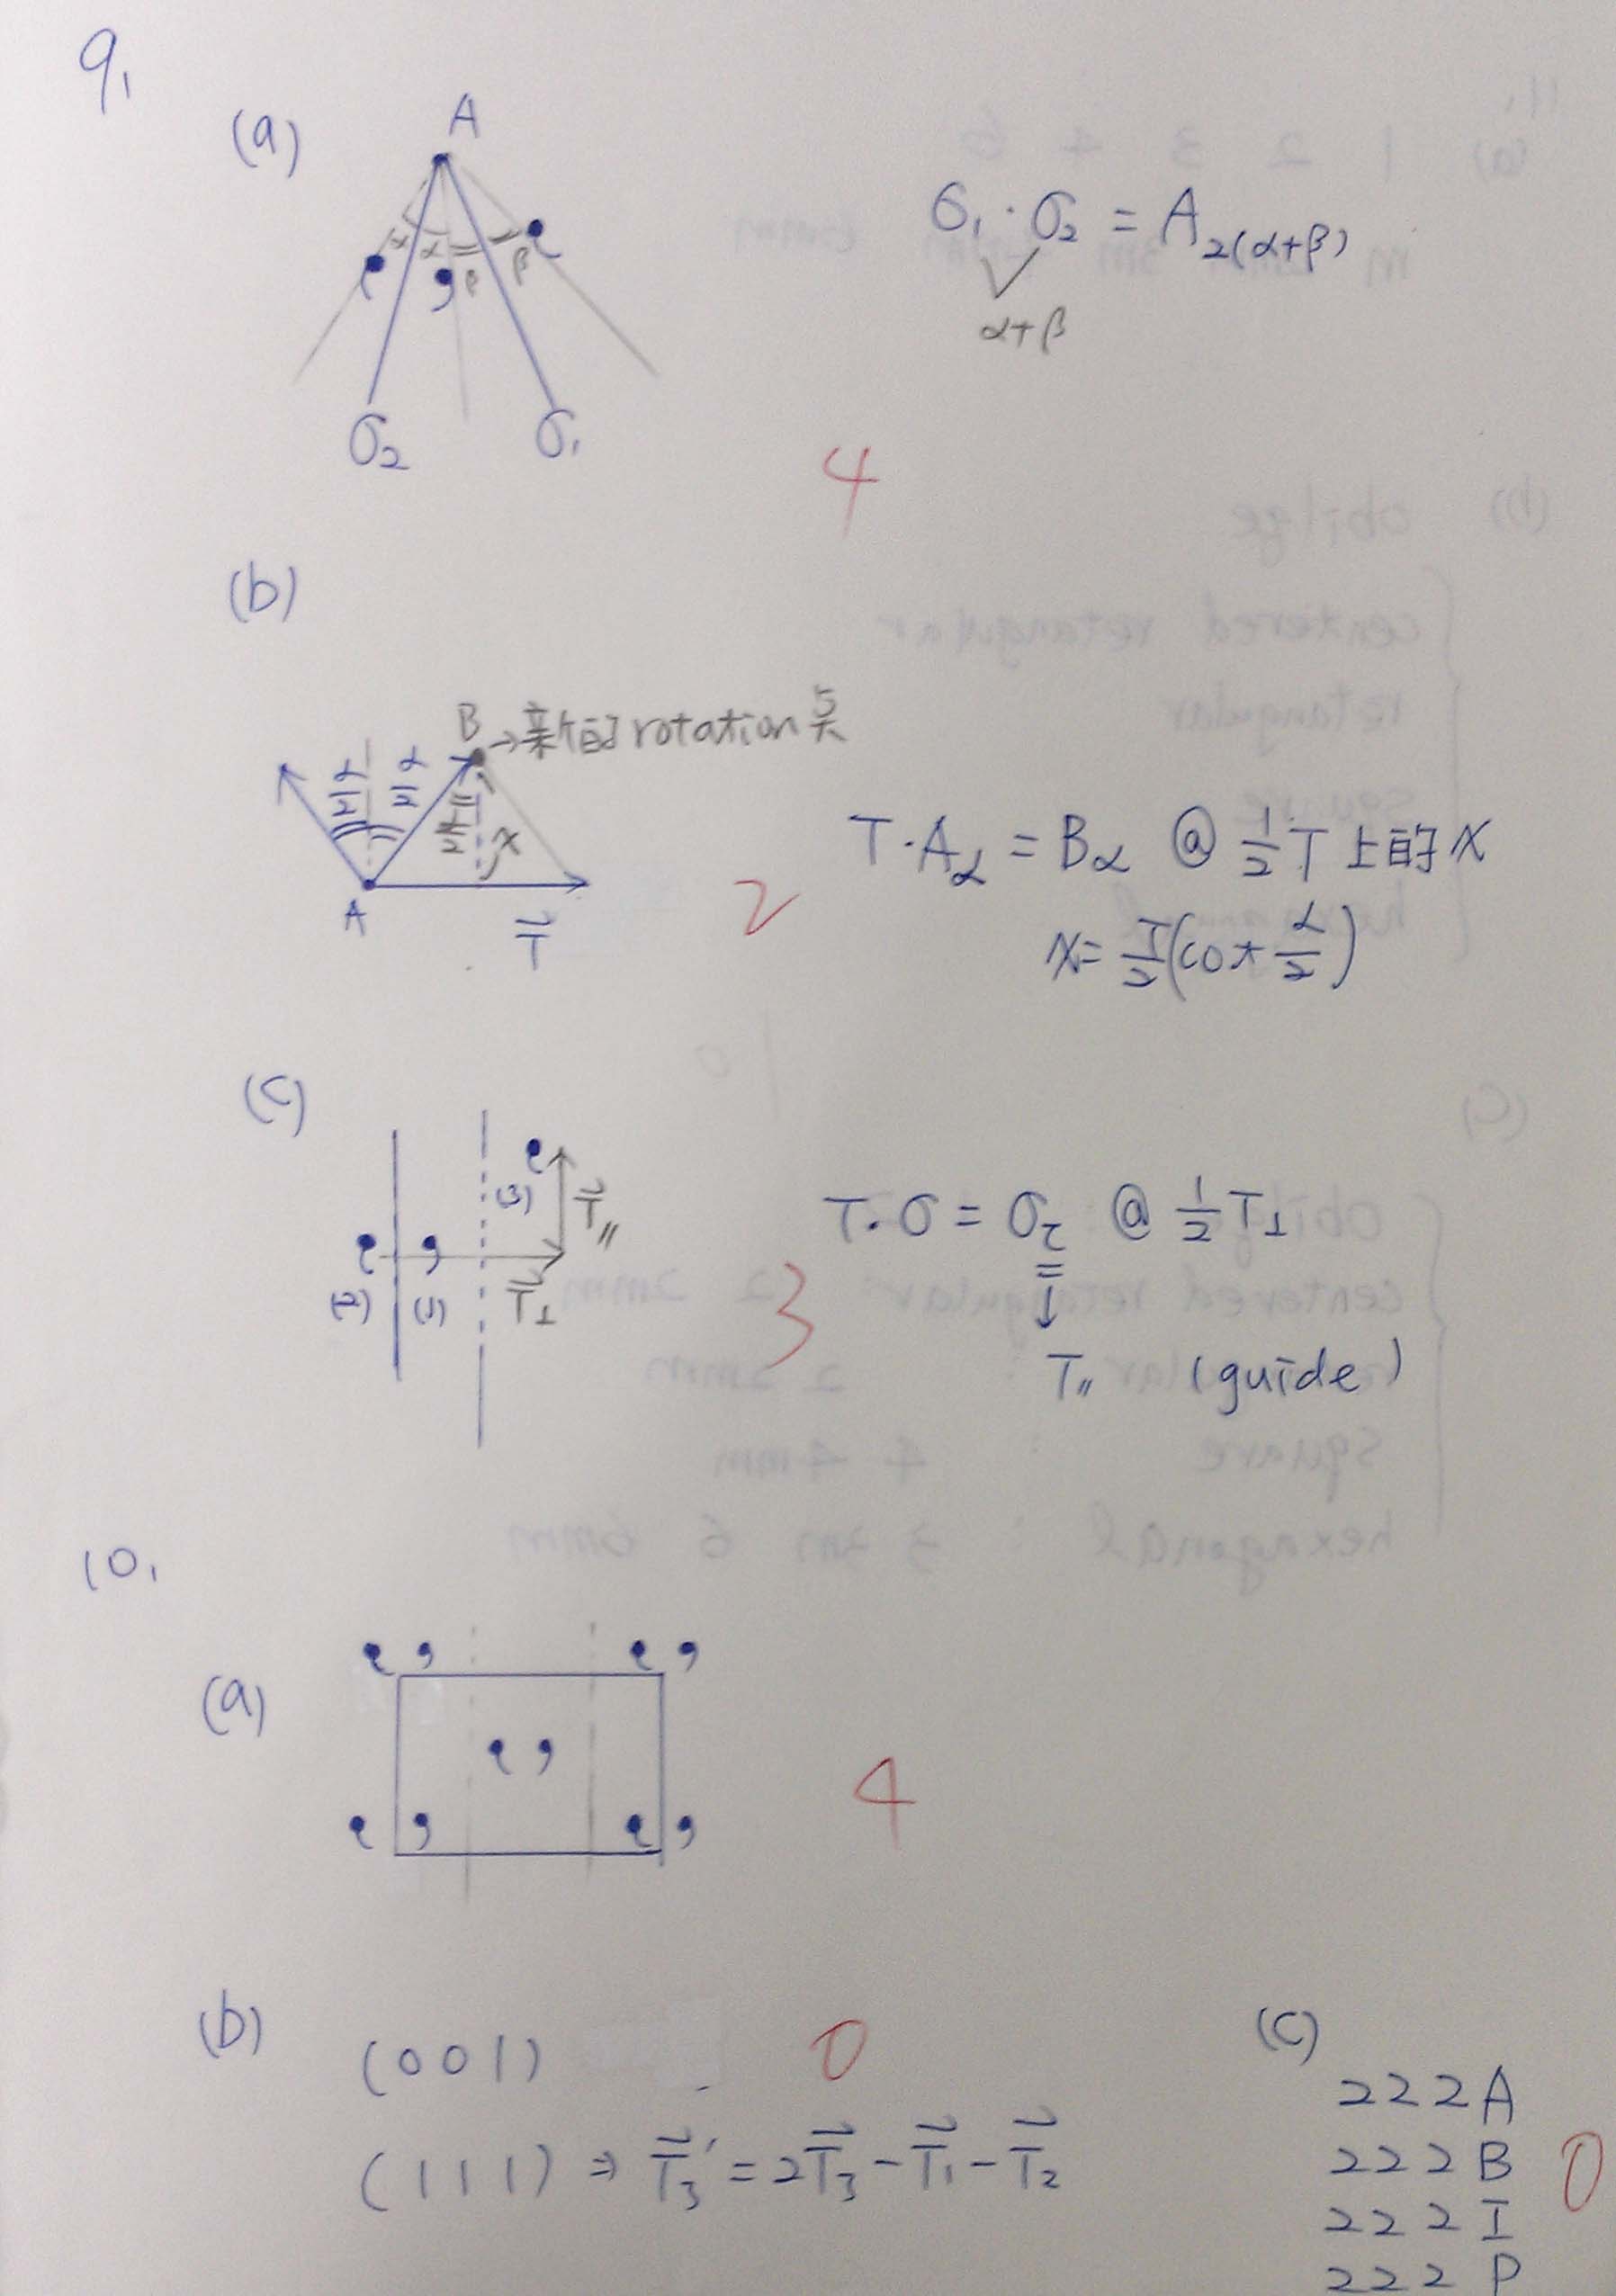 9.
(a)
A
α α β β
σ₂ σ₁
σ₁ · σ₂ = A₂(α+β)
α+β
4
(b)
B → 新的 rotation 点
α/2 α/2 α/2 x
A
T⃗
T · Aα = Bα @ 1/2 T 上的 x
x = T/2 (cot α/2)
2
(c)
(3) T⃗∥
(2) (1) T⃗⊥
T · σ = στ @ 1/2 T⊥
↓
T∥ (guide)
3
10.
(a)
4
(b)
(001)
(111) ⇒ T⃗₃' = 2T⃗₃ - T⃗₁ - T⃗₂
0
(c)
222A
222B
222I
222P
0